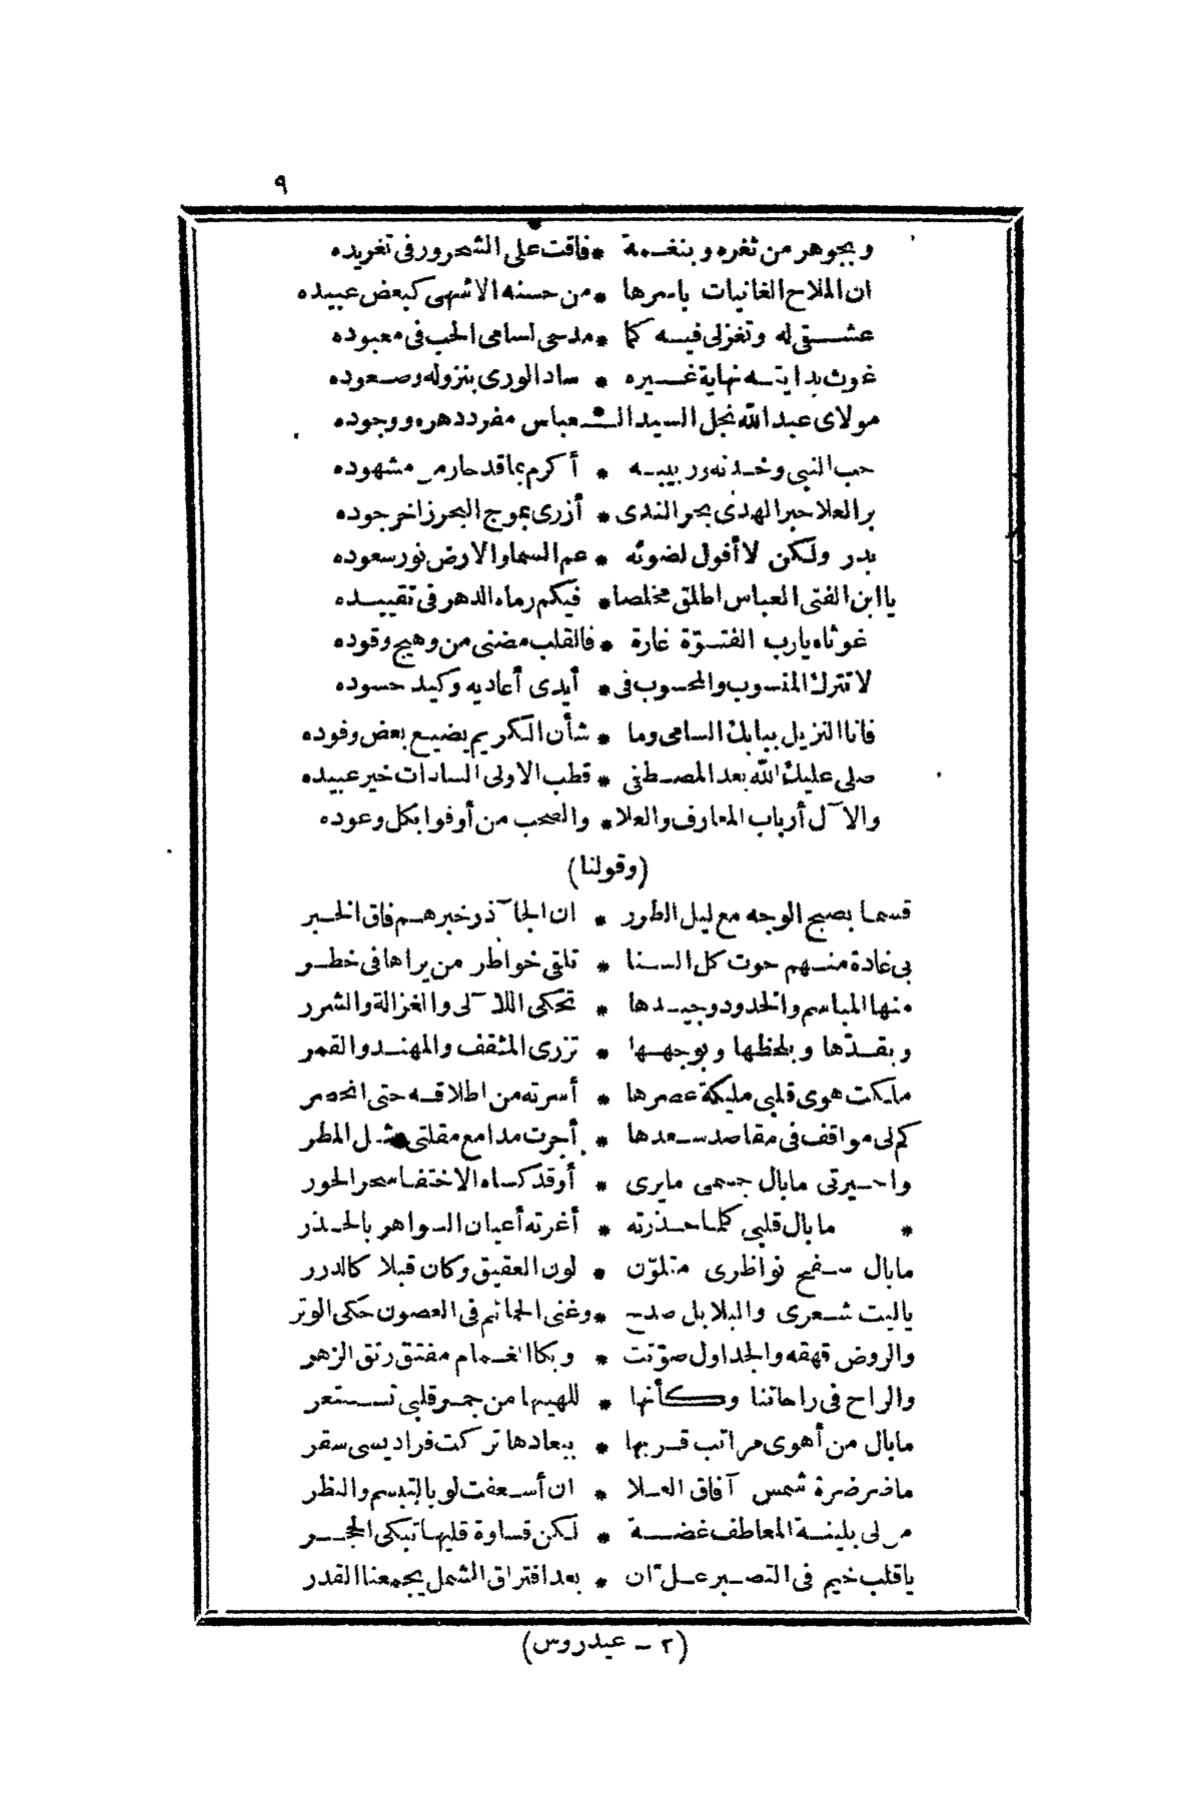 ٩
وبجوهر من ثغره وبنغمة * فاقت على الشحرور في تغريده
ان الملاح الغانيات باسرها * من حسنه الاشهى كبعض عبيده
عشقي له وتغزلي فيه كما * مدحي لسامى الحب في معبوده
غوث بدايته نهاية غيره * ساد الورى بنزوله وصعوده
مولاى عبد الله نجل السيد الشعباس مفرد دهره ووجوده
حب النبي وخدنه وربيبه * أكرم بما قد حاز من مشهوده
بر العلا حبر الهدى بحر الندى * أزرى بموج البحر زاخر جوده
بدر ولكن لا أفول لضوئه * عم السما والارض نور سعوده
يا ابن الفتى العباس اطلق مخلصا * فيكم رماه الدهر في تقييده
غوثاه يارب الفتوّة غارة * فالقلب مضنى من وهيج وقوده
لا تترك المنسوب والمحسوب في * أيدى أعاديه وكيد حسوده
فانا النزيل ببابك السامى وما * شأن الكريم يضيع بعض وفوده
صلى عليك الله بعد المصطفى * قطب الاولى السادات خير عبيده
والآل أرباب المعارف والعلا * والصحب من أوفوا بكل وعوده
(وقولنا)
قسما بصبح الوجه مع ليل الطرر * ان الجآذر خبرهم فاق الخبر
بي غادة منهم حوت كل السنا * تلقى خواطر من يراها في خطر
منها المباسم والخدود وجيدها * تحكى اللآلى والغزالة والشرر
وبقدّها وبلحظها وبوجهها * تزرى المثقف والمهند والقمر
ملكت هوى قلبي مليكة عصرها * أسرته من اطلاقه حتى انحصر
كم لى مواقف في مقاصد سعدها * أجرت مدامع مقلتي مثل المطر
واحيرتى مابال جسمى مايرى * أوقد كساه الاختفا سحر الحور
* مابال قلبي كلما حذرته * أغرته أعيان السواهر بالحذر
مابال سفح نواظرى متلوّن * لون العقيق وكان قبلا كالدرر
ياليت شعرى والبلابل صدح * وغنى الحمائم في الغصون حكى الوتر
والروض قهقه والجداول صوّتت * وبكا الغمام مفتق رتق الزهر
والراح في راحاتنا وكأنها * للهيبها من جمر قلبي تستعر
مابال من أهوى مراتب قربها * ببعادها تركت فراديسى سقر
ماضر ضرة شمس آفاق العلا * ان أسعفت لو بالتبسم والنظر
من لى بلينة المعاطف غضة * لكن قساوة قلبها تبكى الحجر
ياقلب خيم في التصبر علّ ان * بعد افتراق الشمل يجمعنا القدر
(٢ - عيدروس)